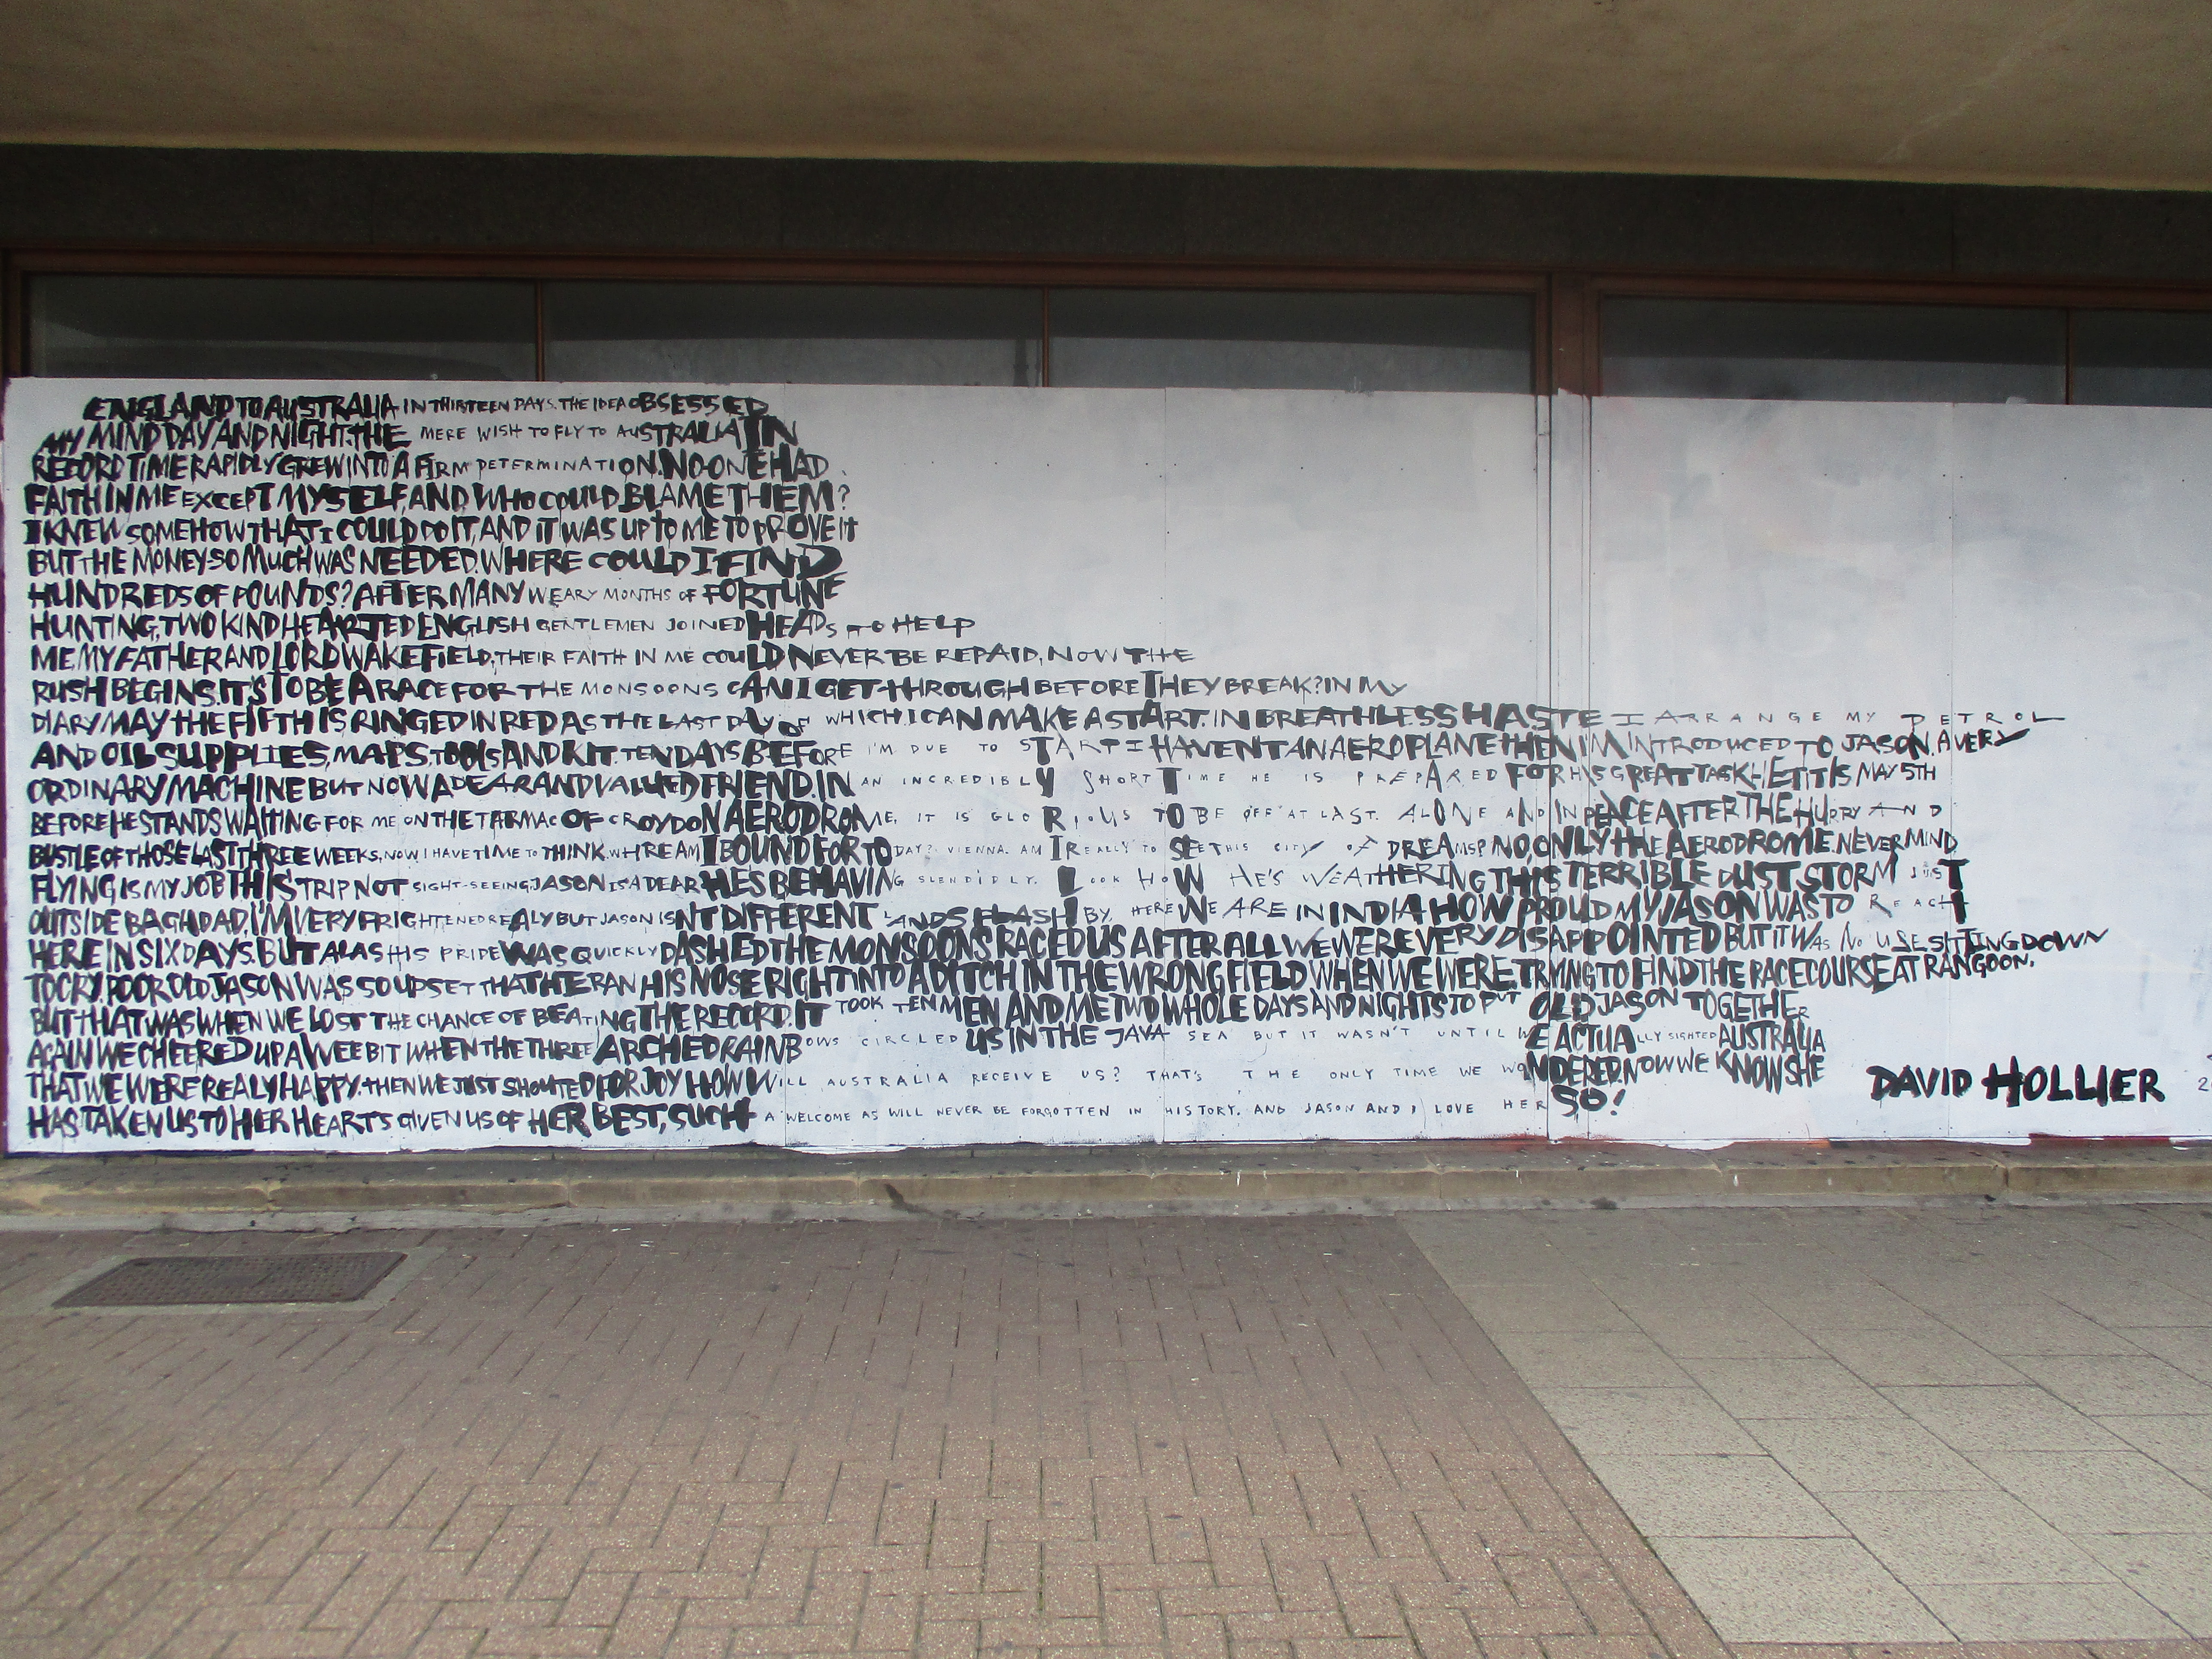 ENGLAND TO AUSTRALIA IN THIRTEEN DAYS. THE IDEA OBSESSED
MY MIND DAY AND NIGHT. THE MERE WISH TO FLY TO AUSTRALIA IN
RECORD TIME RAPIDLY GREW INTO A FIRM DETERMINATION. NO-ONE HAD
FAITH IN ME EXCEPT MYSELF, AND WHO COULD BLAME THEM?
I KNEW SOMEHOW THAT I COULD DO IT, AND IT WAS UP TO ME TO PROVE IT
BUT THE MONEY-SO MUCH WAS NEEDED. WHERE COULD I FIND
HUNDREDS OF POUNDS? AFTER MANY WEARY MONTHS OF FORTUNE
HUNTING, TWO KIND HEARTED ENGLISH GENTLEMEN JOINED HEADS TO HELP
ME MY FATHER AND LORD WAKEFIELD, THEIR FAITH IN ME COULD NEVER BE REPAID. NOW THE
RUSH BEGINS. IT'S TO BE A RACE FOR THE MONSOONS CAN I GET THROUGH BEFORE THEY BREAK? IN MY
DIARY MAY THE FIFTH IS RINGED IN RED AS THE LAST DAY OF WHICH I CAN MAKE A START. IN BREATHLESS HASTE I ARRANGE MY PETROL
AND OIL SUPPLIES, MAPS, TOOLS AND KIT. TEN DAYS BEFORE I'M DUE TO START I HAVENT AN AEROPLANE THEN I'M INTRODUCED TO JASON, A VERY
ORDINARY MACHINE BUT NOW A DEAR AND VALUED FRIEND. IN AN INCREDIBLY SHORT TIME HE IS PREPARED FOR HIS GREAT TASK-HE IT IS MAY 5TH
BEFORE HE STANDS WAITING FOR ME ON THE TARMAC OF CROYDON AERODROME, IT IS GLORIOUS TO BE OFF AT LAST. ALONE AND IN PEACE AFTER THE HURRY AND
BUSTLE OF THOSE LAST THREE WEEKS, NOW I HAVE TIME TO THINK. WHERE AM I BOUND FOR TO DAY? VIENNA. AM I REALLY TO SEE THIS CITY OF DREAMS? NO, ONLY THE AERODROME. NEVER MIND
FLYING IS MY JOB THIS TRIP NOT SIGHT-SEEING. JASON IS A DEAR HE'S BEHAVING SLENDIDLY. LOOK HOW HE'S WEATHERING THIS TERRIBLE DUST STORM JUST
OUTSIDE BAGHDAD. I'M VERY FRIGHTENED REALY BUT JASON ISN'T DIFFERENT LANDS FLASH BY, HERE WE ARE IN INDIA HOW PROUD MY JASON WAS TO REACH IT
HERE IN SIX DAYS. BUT ALAS HIS PRIDE WAS QUICKLY DASHED THE MONSOONS RACED US AFTER ALL WE WERE VERY DISAPPOINTED BUT IT WAS NO USE SITTING DOWN
TO CRY. POOR OLD JASON WAS SO UPSET THAT HE RAN HIS NOSE RIGHT INTO A DITCH IN THE WRONG FIELD WHEN WE WERE TRYING TO FIND THE RACECOURSE AT RANGOON.
BUT THAT WAS WHEN WE LOST THE CHANCE OF BEATING THE RECORD. IT TOOK TEN MEN AND ME TWO WHOLE DAYS AND NIGHTS TO PUT OLD JASON TOGETHER
AGAIN WE CHEERED UP A WEE BIT WHEN THE THREE ARCHED RAINBOWS CIRCLED US IN THE JAVA SEA BUT IT WASN'T UNTIL WE ACTUALLY SIGHTED AUSTRALIA
THAT WE WERE REALY HAPPY. THEN WE JUST SHOUTED FOR JOY HOW WILL AUSTRALIA RECEIVE US? THAT'S THE ONLY TIME WE WONDERED. NOW WE KNOW SHE
HAS TAKEN US TO HER HEARTS GIVEN US OF HER BEST, SUCH A WELCOME AS WILL NEVER BE FORGOTTEN IN HISTORY. AND JASON AND I LOVE HER SO!
DAVID HOLLIER